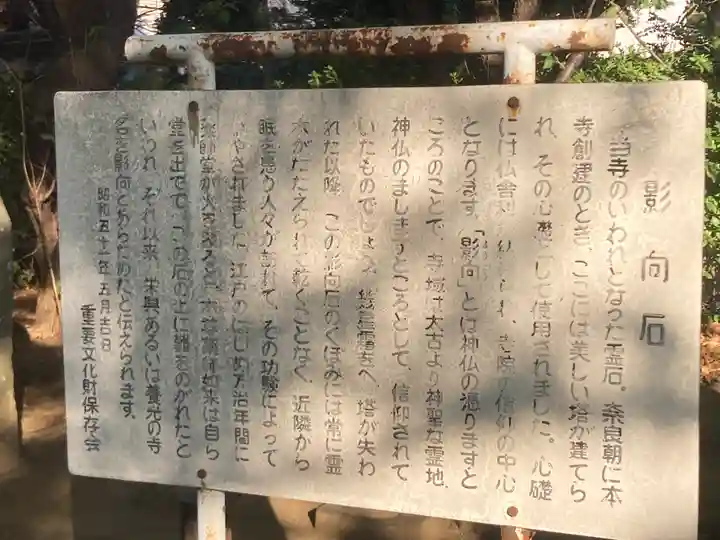 影向石
当寺のいわれとなった霊石。奈良朝に本
寺創建のとき、ここには美しい塔が建てら
れ、その心礎として使用されました。心礎
には仏舎利が納められ、寺院の信仰の中心
となります。「影向」とは神仏の憑りますと
ころのことで、寺域は太古より神聖な霊地、
神仏のましますところとして、信仰されて
いたものでしょう。幾星霜をへ、塔が失わ
れた以降、この影向石のくぼみには常に霊
水がたたえられて乾くことなく、近隣から
眼を患う人々が訪れて、その功験によって
いやされました。江戸のはじめ万治年間に
薬師堂が火を 薬師如来は自ら
堂を出でて、この石の上に難をのがれたと
いわれ、それ以来、栄興あるいは養光の寺
名を影向とあらためたと伝えられます。
昭和五十一年五月吉日
重要文化財保存会